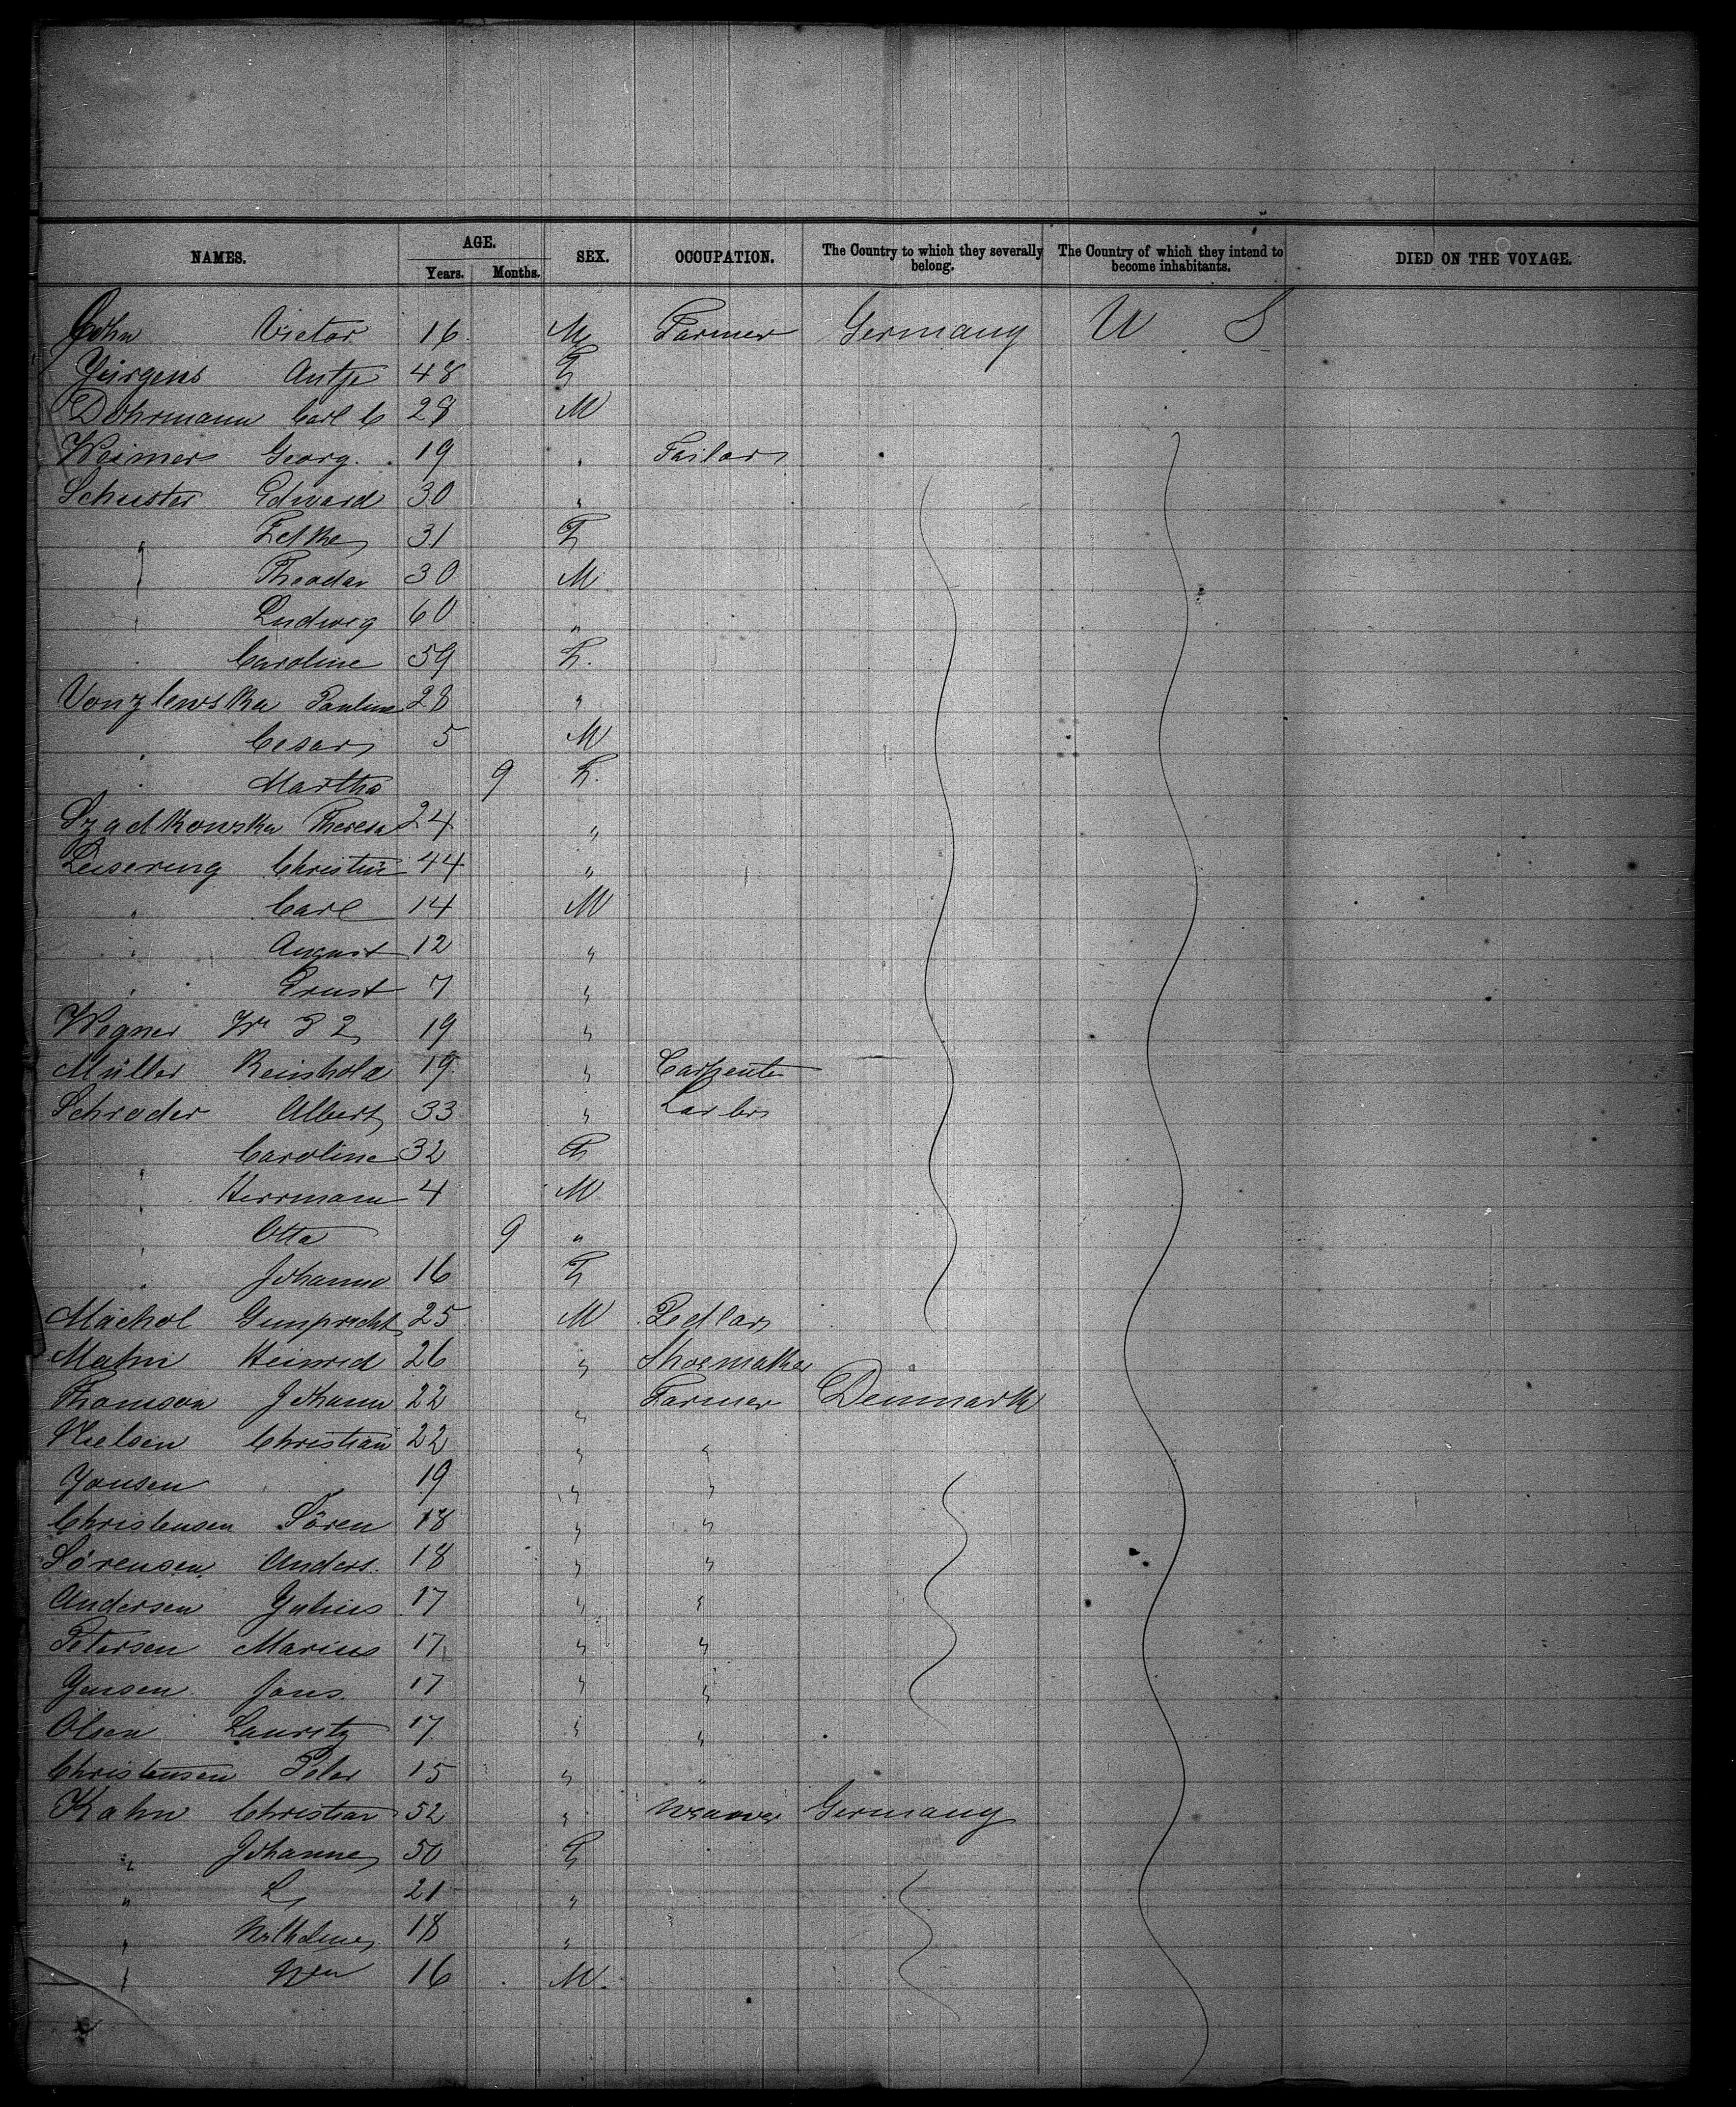 NAMES. AGE. Years. Months. SEX. OCCUPATION. The Country to which they severally belong. The Country of which they intend to become inhabitants. DIED ON THE VOYAGE.
Cohn Victor 16 M Farmer Germany U S
Jürgens Antje 48 F
Dohrmann Carl C 28 M
Weimer Georg. 19 " Tailor
Schuster Edward 30 "
" 31 F
" Theodor 30 M
" Ludwig 60 "
" Caroline 59 F.
Vonzlewska Pauline 28 "
" Cesar 5 M
" Martha 9 F.
Szadkowska Theresa 24 "
Leisering Christin 44 "
" Carl 14 M
" August 12 "
" Ernst 7 "
Wegner 19 "
Müller Reinhold 19 " Carpenter
Schrader Albert 33 "
" Caroline 32 F
" Herrmann 4 M
" Otto 9 "
" Johanna 16 F
Machol Gumprecht 25 M Pedlar
Mahn Heinrich 26 " Shoemaker
Thomson Johann 22 " Farmer Denmark
Nielsen Christian 22 " "
Jansen " 19 " "
Christensen Sören 18 " "
Sörensen Anders. 18 " "
Andersen Julius 17 " "
Petersen Marius 17 " "
Jensen Jens. 17 " "
Olsen Lauritz 17 " "
Christensen Peter 15 " "
Kahn Christian 52 " Weaver Germany
" Johanne 50 F
" L 21 "
" Wilhelmine 18 "
" Wm 16 M.